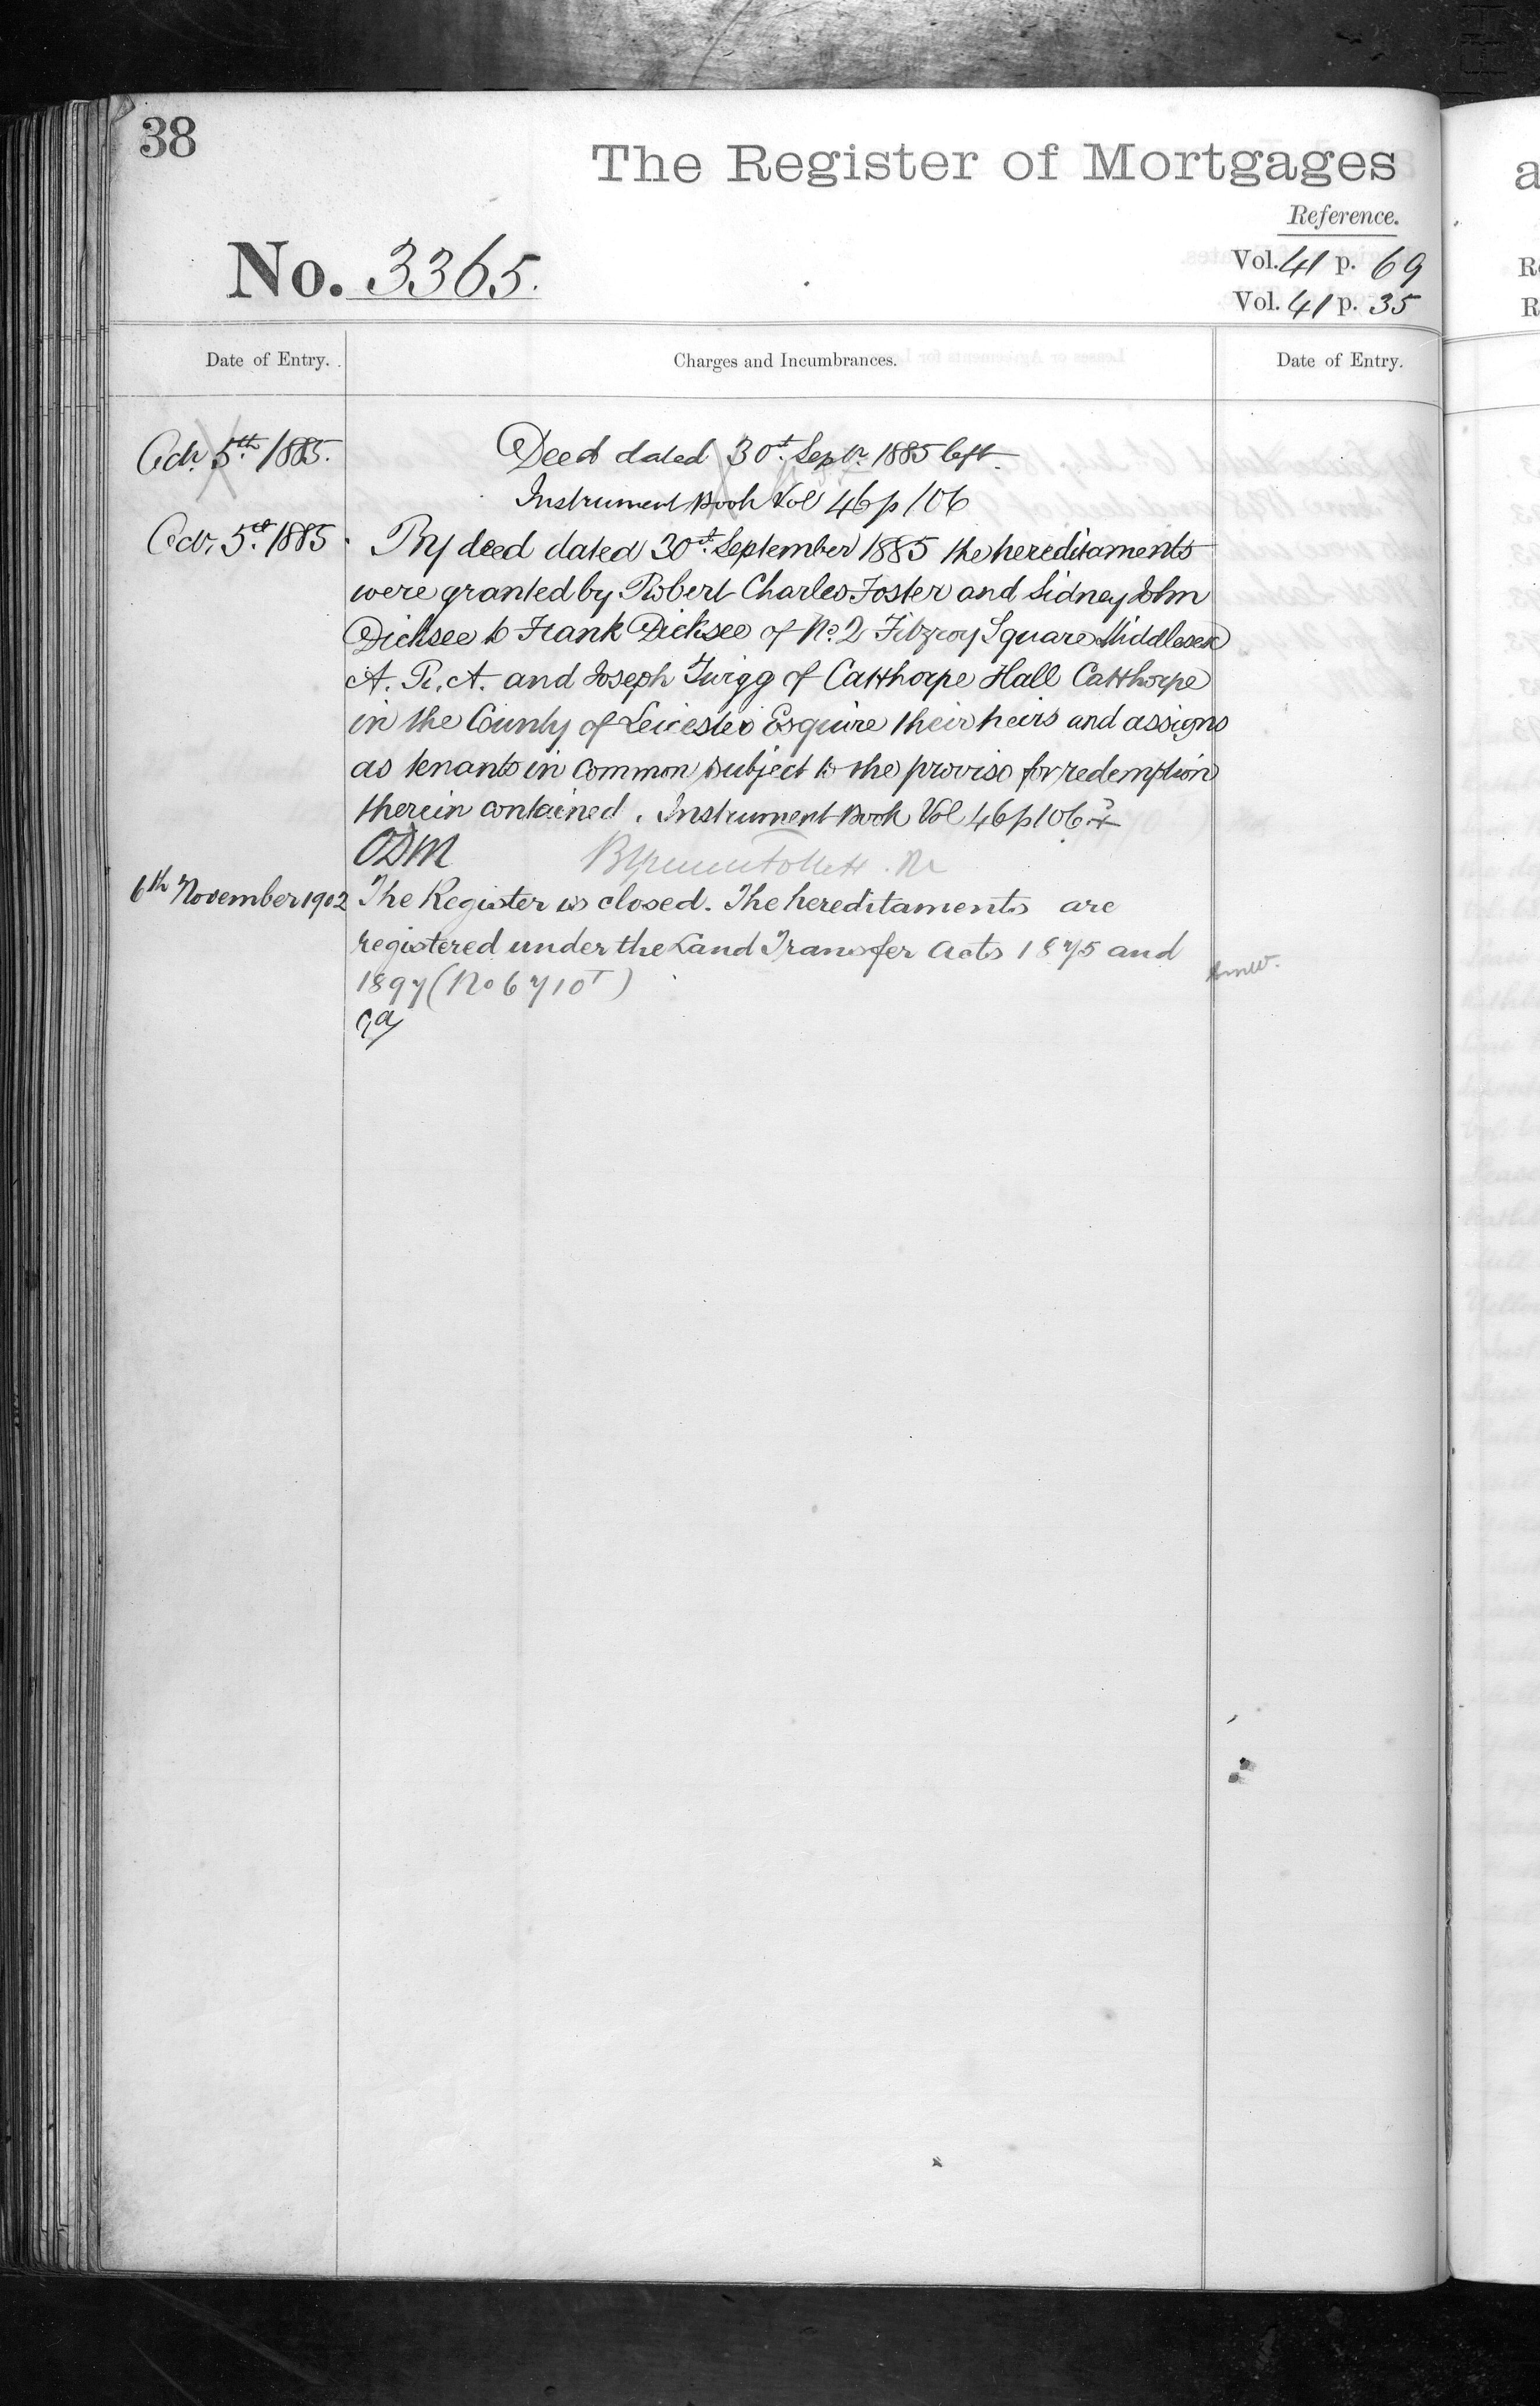 38
The Register of Mortgages
Reference.
No. 3365.
Vol. 41 p. 69
Vol. 41 p. 35
Date of Entry.
Charges and Incumbrances.
Date of Entry.
Octr. 5th 1885.
Deed dated 30th Septr. 1885 left.
Instrument Book Vol 46 p 106
Octr. 5th 1885.
By deed dated 30th September 1885 the hereditaments
were granted by Robert Charles Foster and Sidney John
Dicksee to Frank Dicksee of No. 2 Fitzroy Square Middlesex
A. R. A. and Joseph Twigg of Catthorpe Hall Catthorpe
in the County of Leicester Esquire their heirs and assigns
as tenants in common subject to the proviso for redemption
therein contained. Instrument Book Vol 46 p 106
ODM
6th November 1902
The Register is closed. The hereditaments are
registered under the Land Transfer Acts 1875 and
1897 (No 6710T)